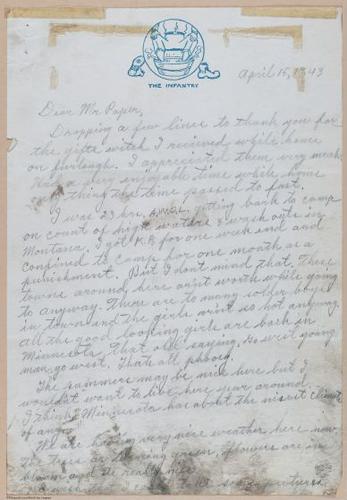 THE INFANTRY
April 15, 1943
Dear Mr Paper,
Dropping a few lines to thank you for
the gifts witch I recieved while home
on furlough. I appreciated them very much.
Had a very enjoyable time while home
only thing the time passed to fast.
I was 23 hrs. A.W.O.L. getting back to camp
on count of high waters & wash outs in
Montana. I got K.P. for one week end and
confined to camp for one month as a
punishment. But I dont mind that. These
towns around here aint worth while going
to anyway. There are to many soldier boys
in town and the girls aint so hot anyway.
All the good looking girls are back in
Minnesota. That old saying, Go west young
man, go west. Thats all
The summers may be nice here but I
wouldnt want to live here year around.
I think Minnesota has about the nicest climate
of any.
We are having very nice weather here now
the trees are turning green, flowers are in
bloom and its really nice.
some pictures